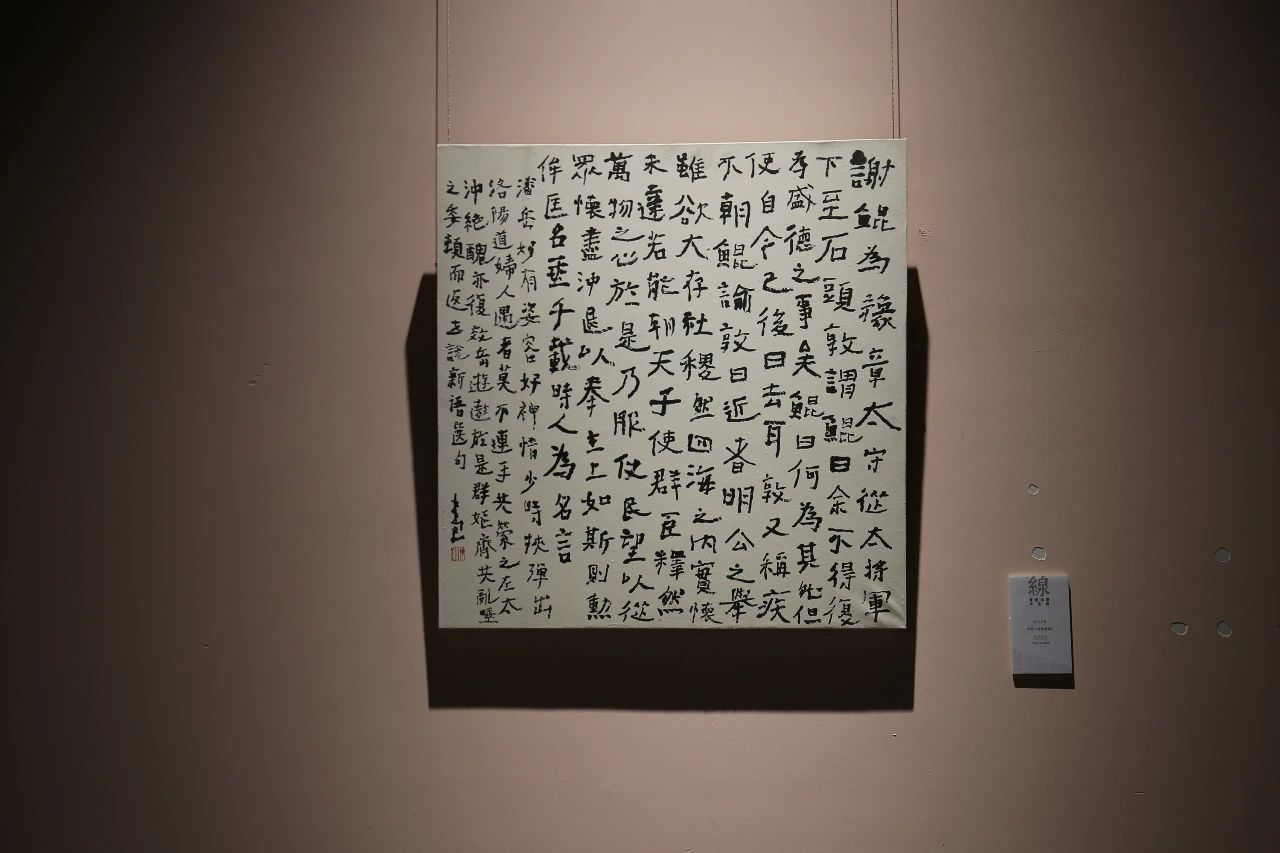 謝鯤為豫章太守從太將軍
下至石頭敦謂鯤曰余不得復
盛德之事矣鯤曰何為其然但
使自今已後日去耳敦又稱疾
不朝鯤諭敦曰近者明公之舉
雖欲大存社稷然四海之內實懷
未達若能朝天子使群臣釋然
萬物之心於是乃服仗民望以從
眾懷盡沖退以奉主上如斯則勲
侔匡名垂千載時人為名言
潘岳妙有姿容好神情少時挾彈出
洛陽道婦人遇者莫不連手共縈之左太
沖絕醜亦復效岳遊遨於是群嫗齊共亂唾
之委頓而返世說新語選句
線